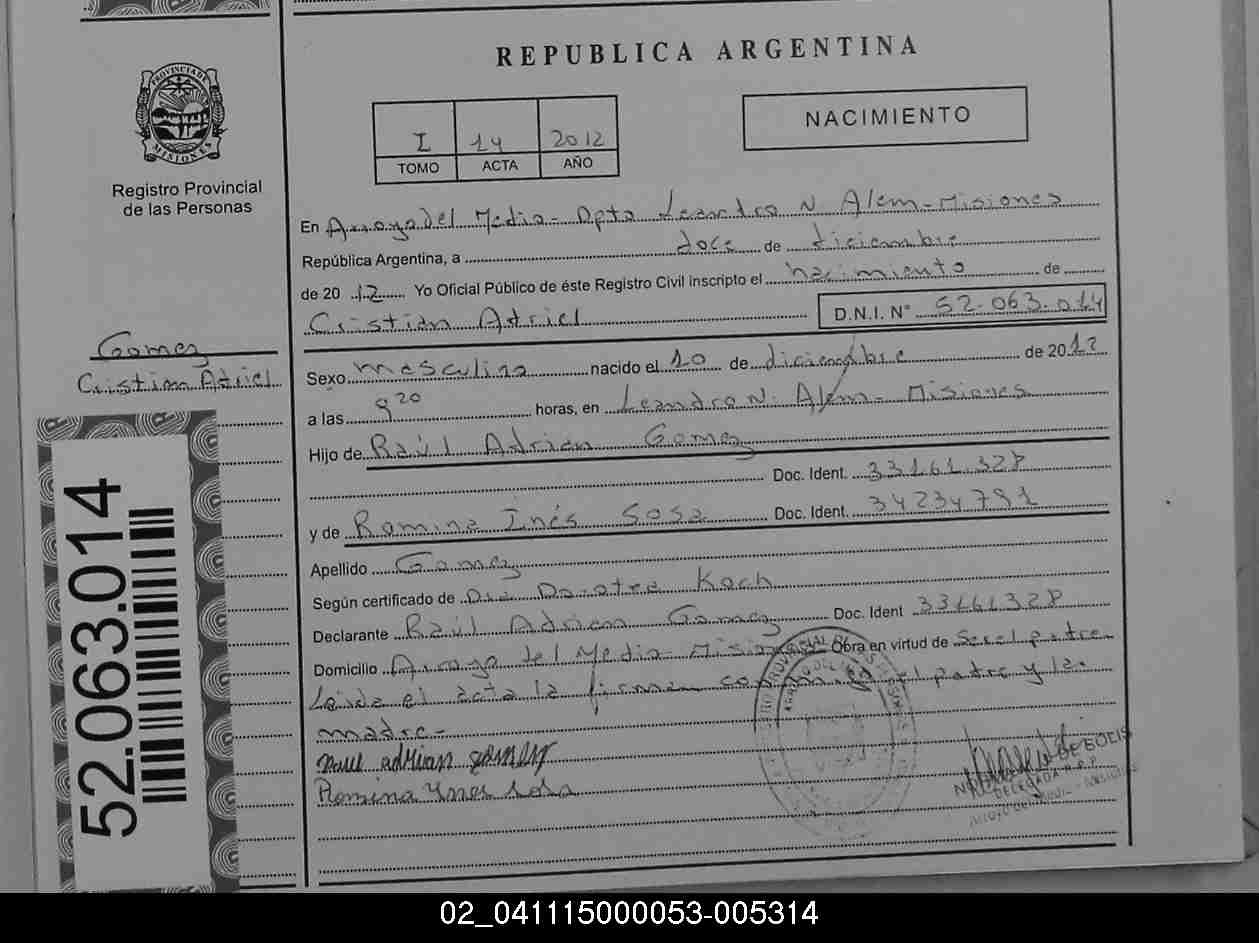 REPUBLICA ARGENTINA
PROVINCIA DE
MISIONES
Registro Provincial
de las Personas
I 14 2012
TOMO ACTA AÑO
NACIMIENTO
En Arroyo del Medio - Dpto Leandro N Alem - Misiones
República Argentina, a doce de diciembre
de 2012 Yo Oficial Público de éste Registro Civil inscripto el nacimiento de
Cristian Adriel D.N.I. N° 52.063.014
Gomez
Cristian Adriel
Sexo masculino nacido el 10 de diciembre de 2012
a las 9 20 horas, en Leandro N. Alem - Misiones
Hijo de Raúl Adrian Gomez
Doc. Ident. 33161328
y de Romina Inés Sosa Doc. Ident. 34234791
Apellido Gomez
Según certificado de Koch
Declarante Raúl Adrian Gomez Doc. Ident 33161328
Domicilio Arroyo del Medio - Misiones Obra en virtud de ser el padre
Leida el acta la firman conmigo el padre y la
madre -
Raul Adrian Gomez
Romina Ines Sosa
DE BOLIS
DELEGADA R.P.P.
52.063.014
02_041115000053-005314